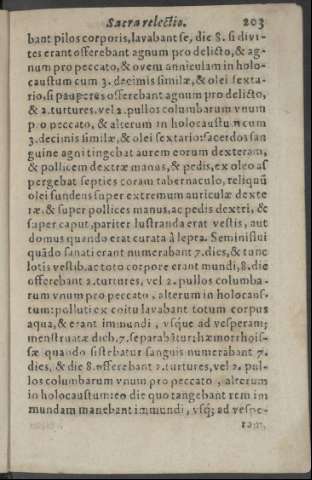 Sacra relectio. 203
bant pilos corporis, lavabant se, die 8. si divi-
tes erant offerebant agnum pro delicto, & ag-
num pro peccato, & ovem anniculam in holo-
caustum cum 3. decimis similæ, & olei sexta-
rio, si pauperes offerebant agnum pro delicto,
& 2. turtures. vel 2. pullos columbarum vnum
pro peccato, & alterum in holocaustum cum
3. decimis similæ, & olei sextario: sacerdos san
guine agni tingebat aurem eorum dexteram,
& pollicem dextræ manus, & pedis, ex oleo as
pergebat septies coram tabernaculo, reliquũ
olei fundens super extremum auriculæ dexte
ræ. & super pollices manus, ac pedis dextri, &
super caput, pariter lustranda erat vestis, aut
domus quando erat curata à lepra. Seminiflui
quãdo sanati erant numerabant 7. dies, & tunc
lotis vestib. ac toto corpore erant mundi, 8. die
offerebant 2. turtures, vel 2. pullos columba-
rum vnum pro peccato, alterum in holocaus-
tum: polluti ex coitu lavabant totum corpus
aqua, & erant immundi, vsque ad vesperam;
menstruatæ dieb. 7. separabãtur; hæmorrhois-
sæ quando sistebatur sanguis numerabant 7.
dies, & die 8. offerebant 2. turtures, vel 2. pul-
los columbarum vnum pro peccato, alterum
in holocaustum: eo die quo tangebant rem im
mundam manebant immundi, vsq; ad vespe-
ram.